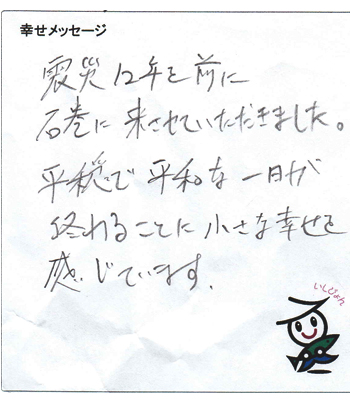 幸せメッセージ
震災12年を前に
石巻に来させていただきました。
平穏で平和な一日が
終わることに小さな幸せを
感じています。
いしぴょん